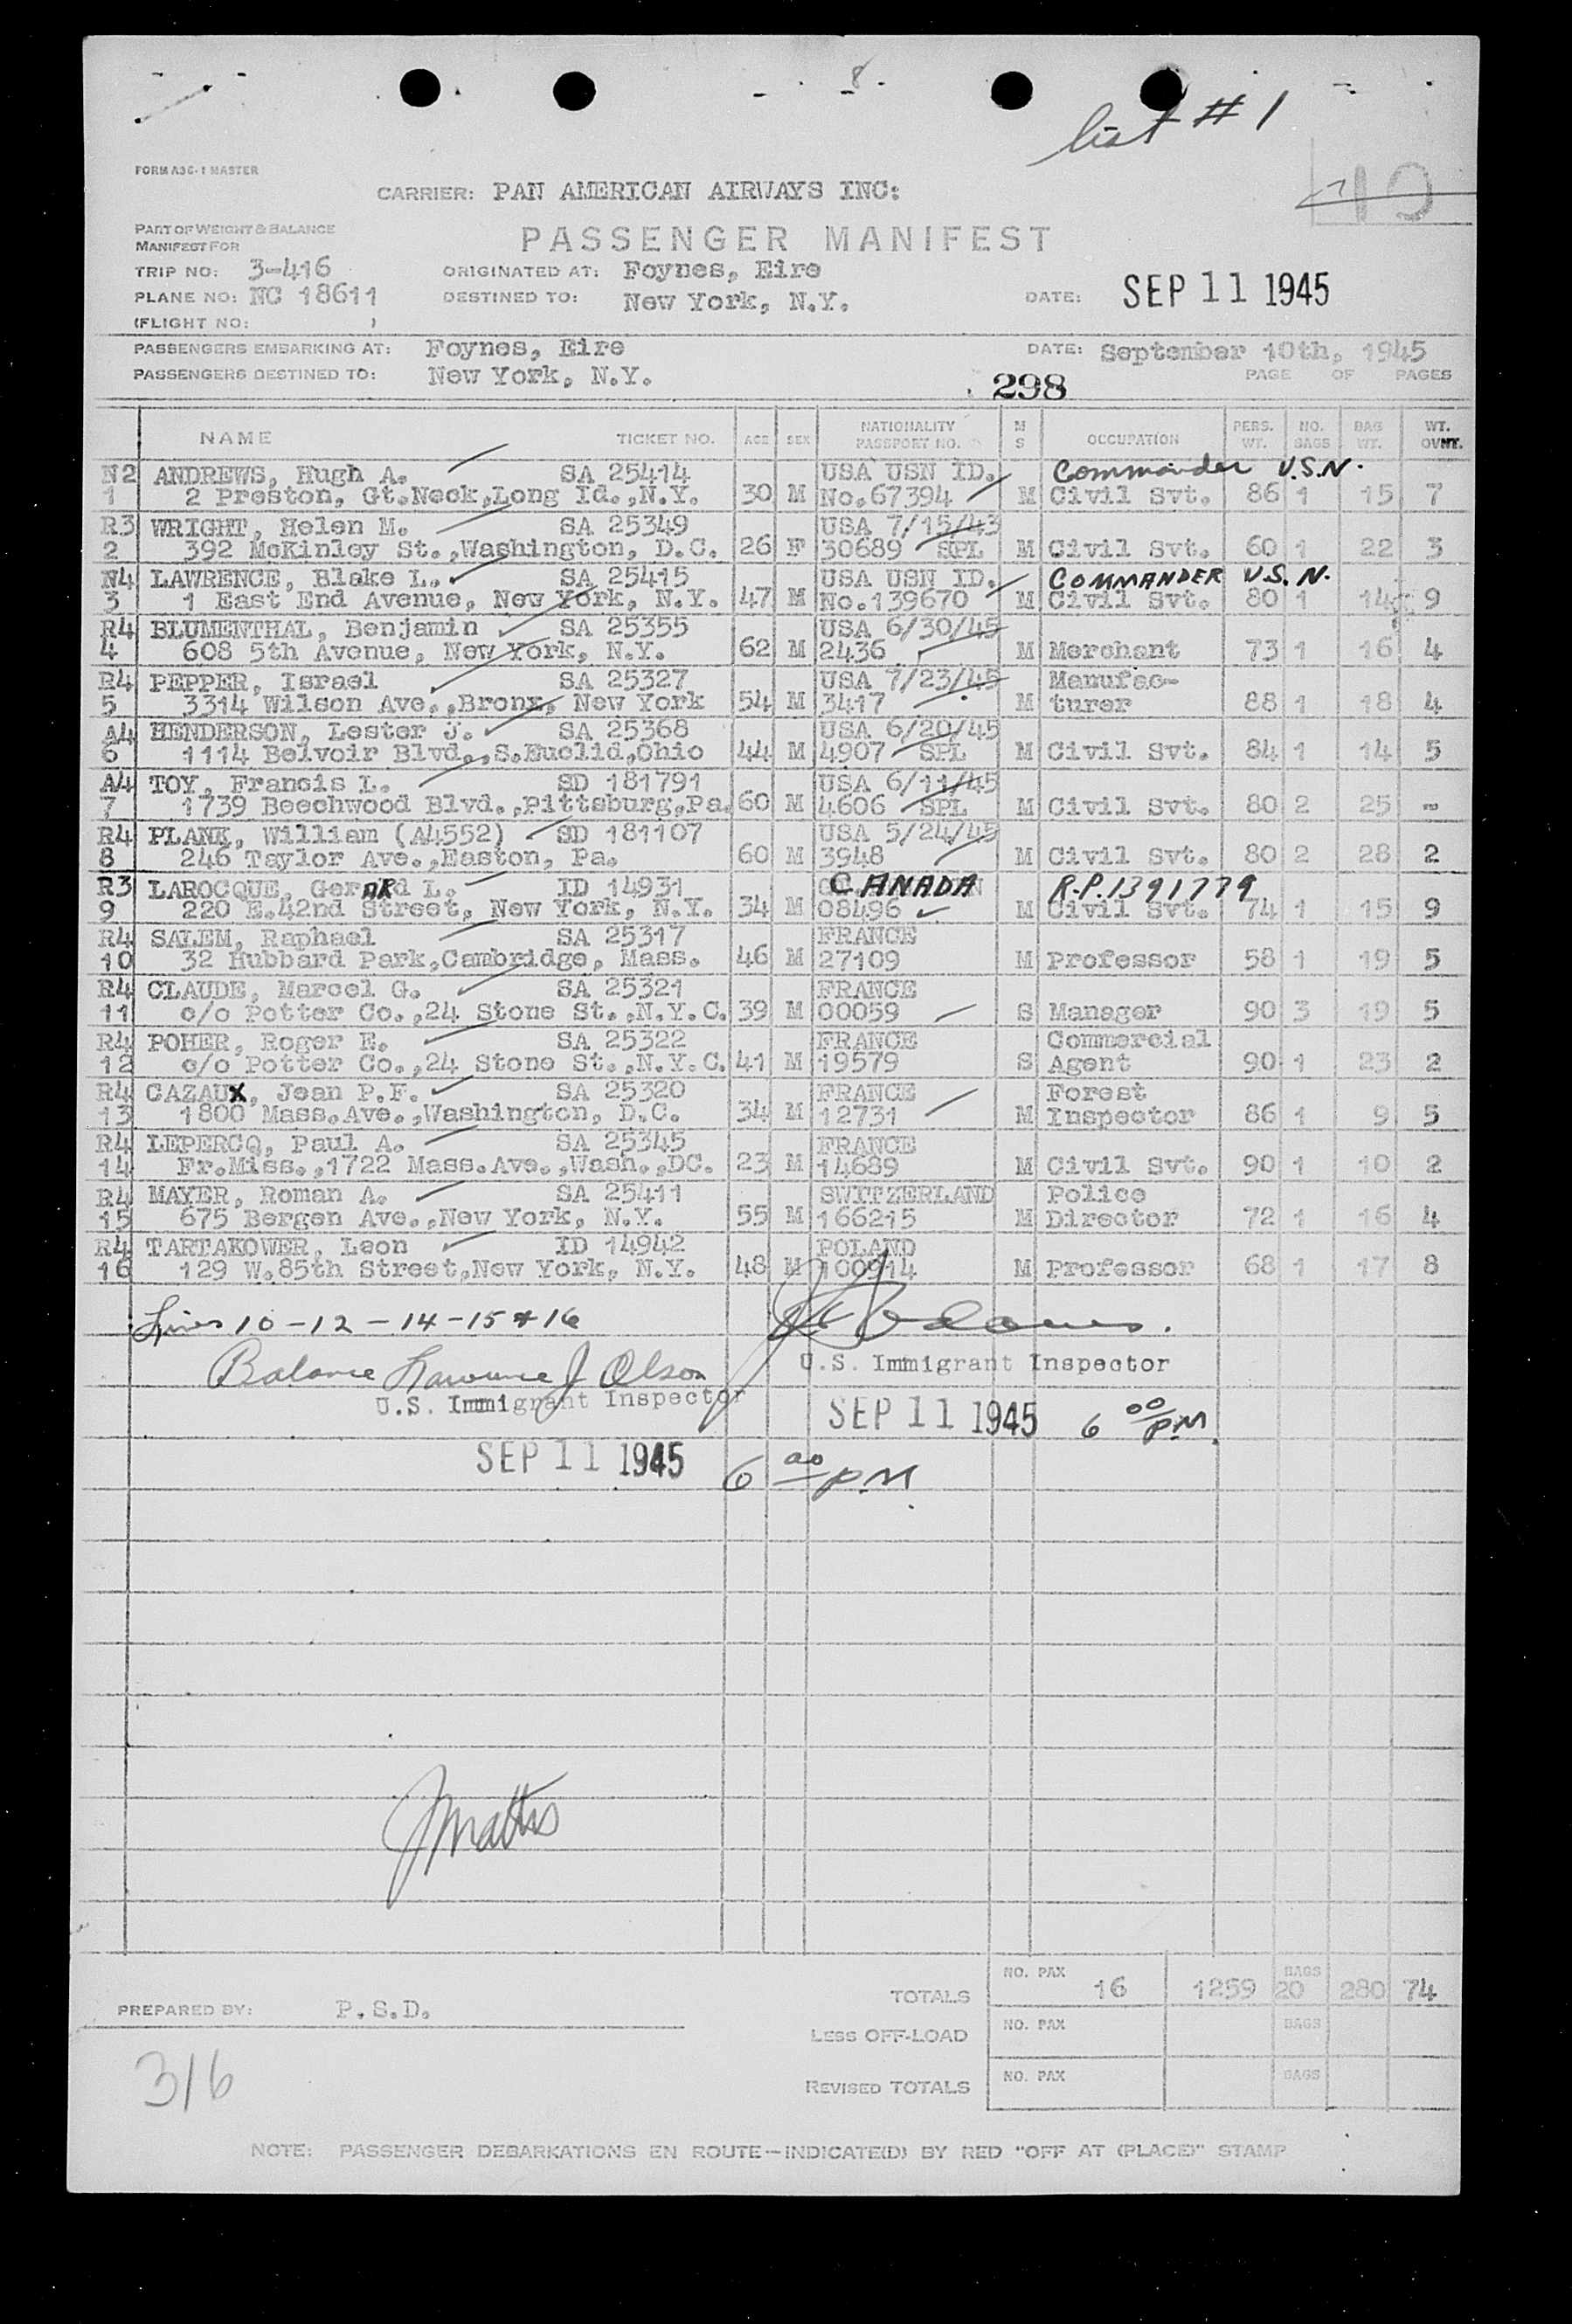 8
list #1
FORM A36-1 MASTER
10
CARRIER: PAN AMERICAN AIRWAYS INC:
PART OF WEIGHT & BALANCE
MANIFEST FOR
PASSENGER MANIFEST
TRIP NO: 3-416 ORIGINATED AT: Foynes, Eire
PLANE NO: NC 18611 DESTINED TO: New York, N.Y. DATE: SEP 11 1945
(FLIGHT NO: )
PASSENGERS EMBARKING AT: Foynes, Eire DATE: September 10th, 1945
PASSENGERS DESTINED TO: New York, N.Y. 298 PAGE OF PAGES
NAME TICKET NO. AGE SEX NATIONALITY PASSPORT NO. M S OCCUPATION PERS. WT. NO. BAGS BAG WT. WT. OVHT.
N2 ANDREWS, Hugh A. SA 25414 USA USN ID. Commander U.S.N.
1 2 Preston, Gt.Neck,Long Id.,N.Y. 30 M No.67394 M Civil Svt. 86 1 15 7
R3 WRIGHT, Helen M. SA 25349 USA 7/15/43
2 392 McKinley St.,Washington, D.C. 26 F 30689 SPL M Civil Svt. 60 1 22 3
N4 LAWRENCE, Blake L. SA 25415 USA USN ID. COMMANDER U.S.N.
3 1 East End Avenue, New York, N.Y. 47 M No.139670 M Civil Svt. 80 1 14 9
R4 BLUMENTHAL, Benjamin SA 25355 USA 6/30/45
4 608 5th Avenue, New York, N.Y. 62 M 2436 M Merchant 73 1 16 4
R4 PEPPER, Israel SA 25327 USA 7/23/45 Manufac-
5 3314 Wilson Ave.,Bronx, New York 54 M 3417 M turer 88 1 18 4
A4 HENDERSON, Lester J. SA 25368 USA 6/20/45
6 1114 Belvoir Blvd.,S.Euclid,Ohio 44 M 4907 SPL M Civil Svt. 84 1 14 5
A4 TOY, Francis L. SD 181791 USA 6/11/45
7 1739 Beechwood Blvd.,Pittsburg,Pa. 60 M 4606 SPL M Civil Svt. 80 2 25 -
R4 PLANK, William (A4552) SD 181107 USA 5/24/45
8 246 Taylor Ave.,Easton, Pa. 60 M 3948 M Civil Svt. 80 2 28 2
R3 LAROCQUE, GerARd L. ID 14931 CANADA R.P.1391779
9 220 E.42nd Street, New York, N.Y. 34 M 08496 M Civil Svt. 74 1 15 9
R4 SALEM, Raphael SA 25317 FRANCE
10 32 Hubbard Park,Cambridge, Mass. 46 M 27109 M Professor 58 1 19 5
R4 CLAUDE, Marcel G. SA 25321 FRANCE
11 c/o Potter Co.,24 Stone St.,N.Y.C. 39 M 00059 S Manager 90 3 19 5
R4 POHER, Roger E. SA 25322 FRANCE Commercial
12 c/o Potter Co.,24 Stone St.,N.Y.C. 41 M 19579 S Agent 90 1 23 2
R4 CAZAUX, Jean P.F. SA 25320 FRANCE Forest
13 1800 Mass.Ave.,Washington, D.C. 34 M 12731 M Inspector 86 1 9 5
R4 LEPERCQ, Paul A. SA 25345 FRANCE
14 Fr.Miss.,1722 Mass.Ave.,Wash.,DC. 23 M 14689 M Civil Svt. 90 1 10 2
R4 MAYER, Roman A. SA 25411 SWITZERLAND Police
15 675 Bergen Ave.,New York, N.Y. 55 M 166215 M Director 72 1 16 4
R4 TARTAKOWER, Leon ID 14942 POLAND
16 129 W.85th Street,New York, N.Y. 48 M 100914 M Professor 68 1 17 8
Lines 10-12-14-15 & 16
Balance Lawrence J Olson
U.S. Immigrant Inspector
U.S. Immigrant Inspector
SEP 11 1945 6 00 PM
SEP 11 1945 6 00 PM
JMatts
TOTALS NO. PAX 16 1259 BAGS 20 280 74
PREPARED BY: P.S.D.
LESS OFF-LOAD NO. PAX BAGS
REVISED TOTALS NO. PAX BAGS
316
NOTE: PASSENGER DEBARKATIONS EN ROUTE—INDICATE(D) BY RED "OFF AT (PLACE)" STAMP